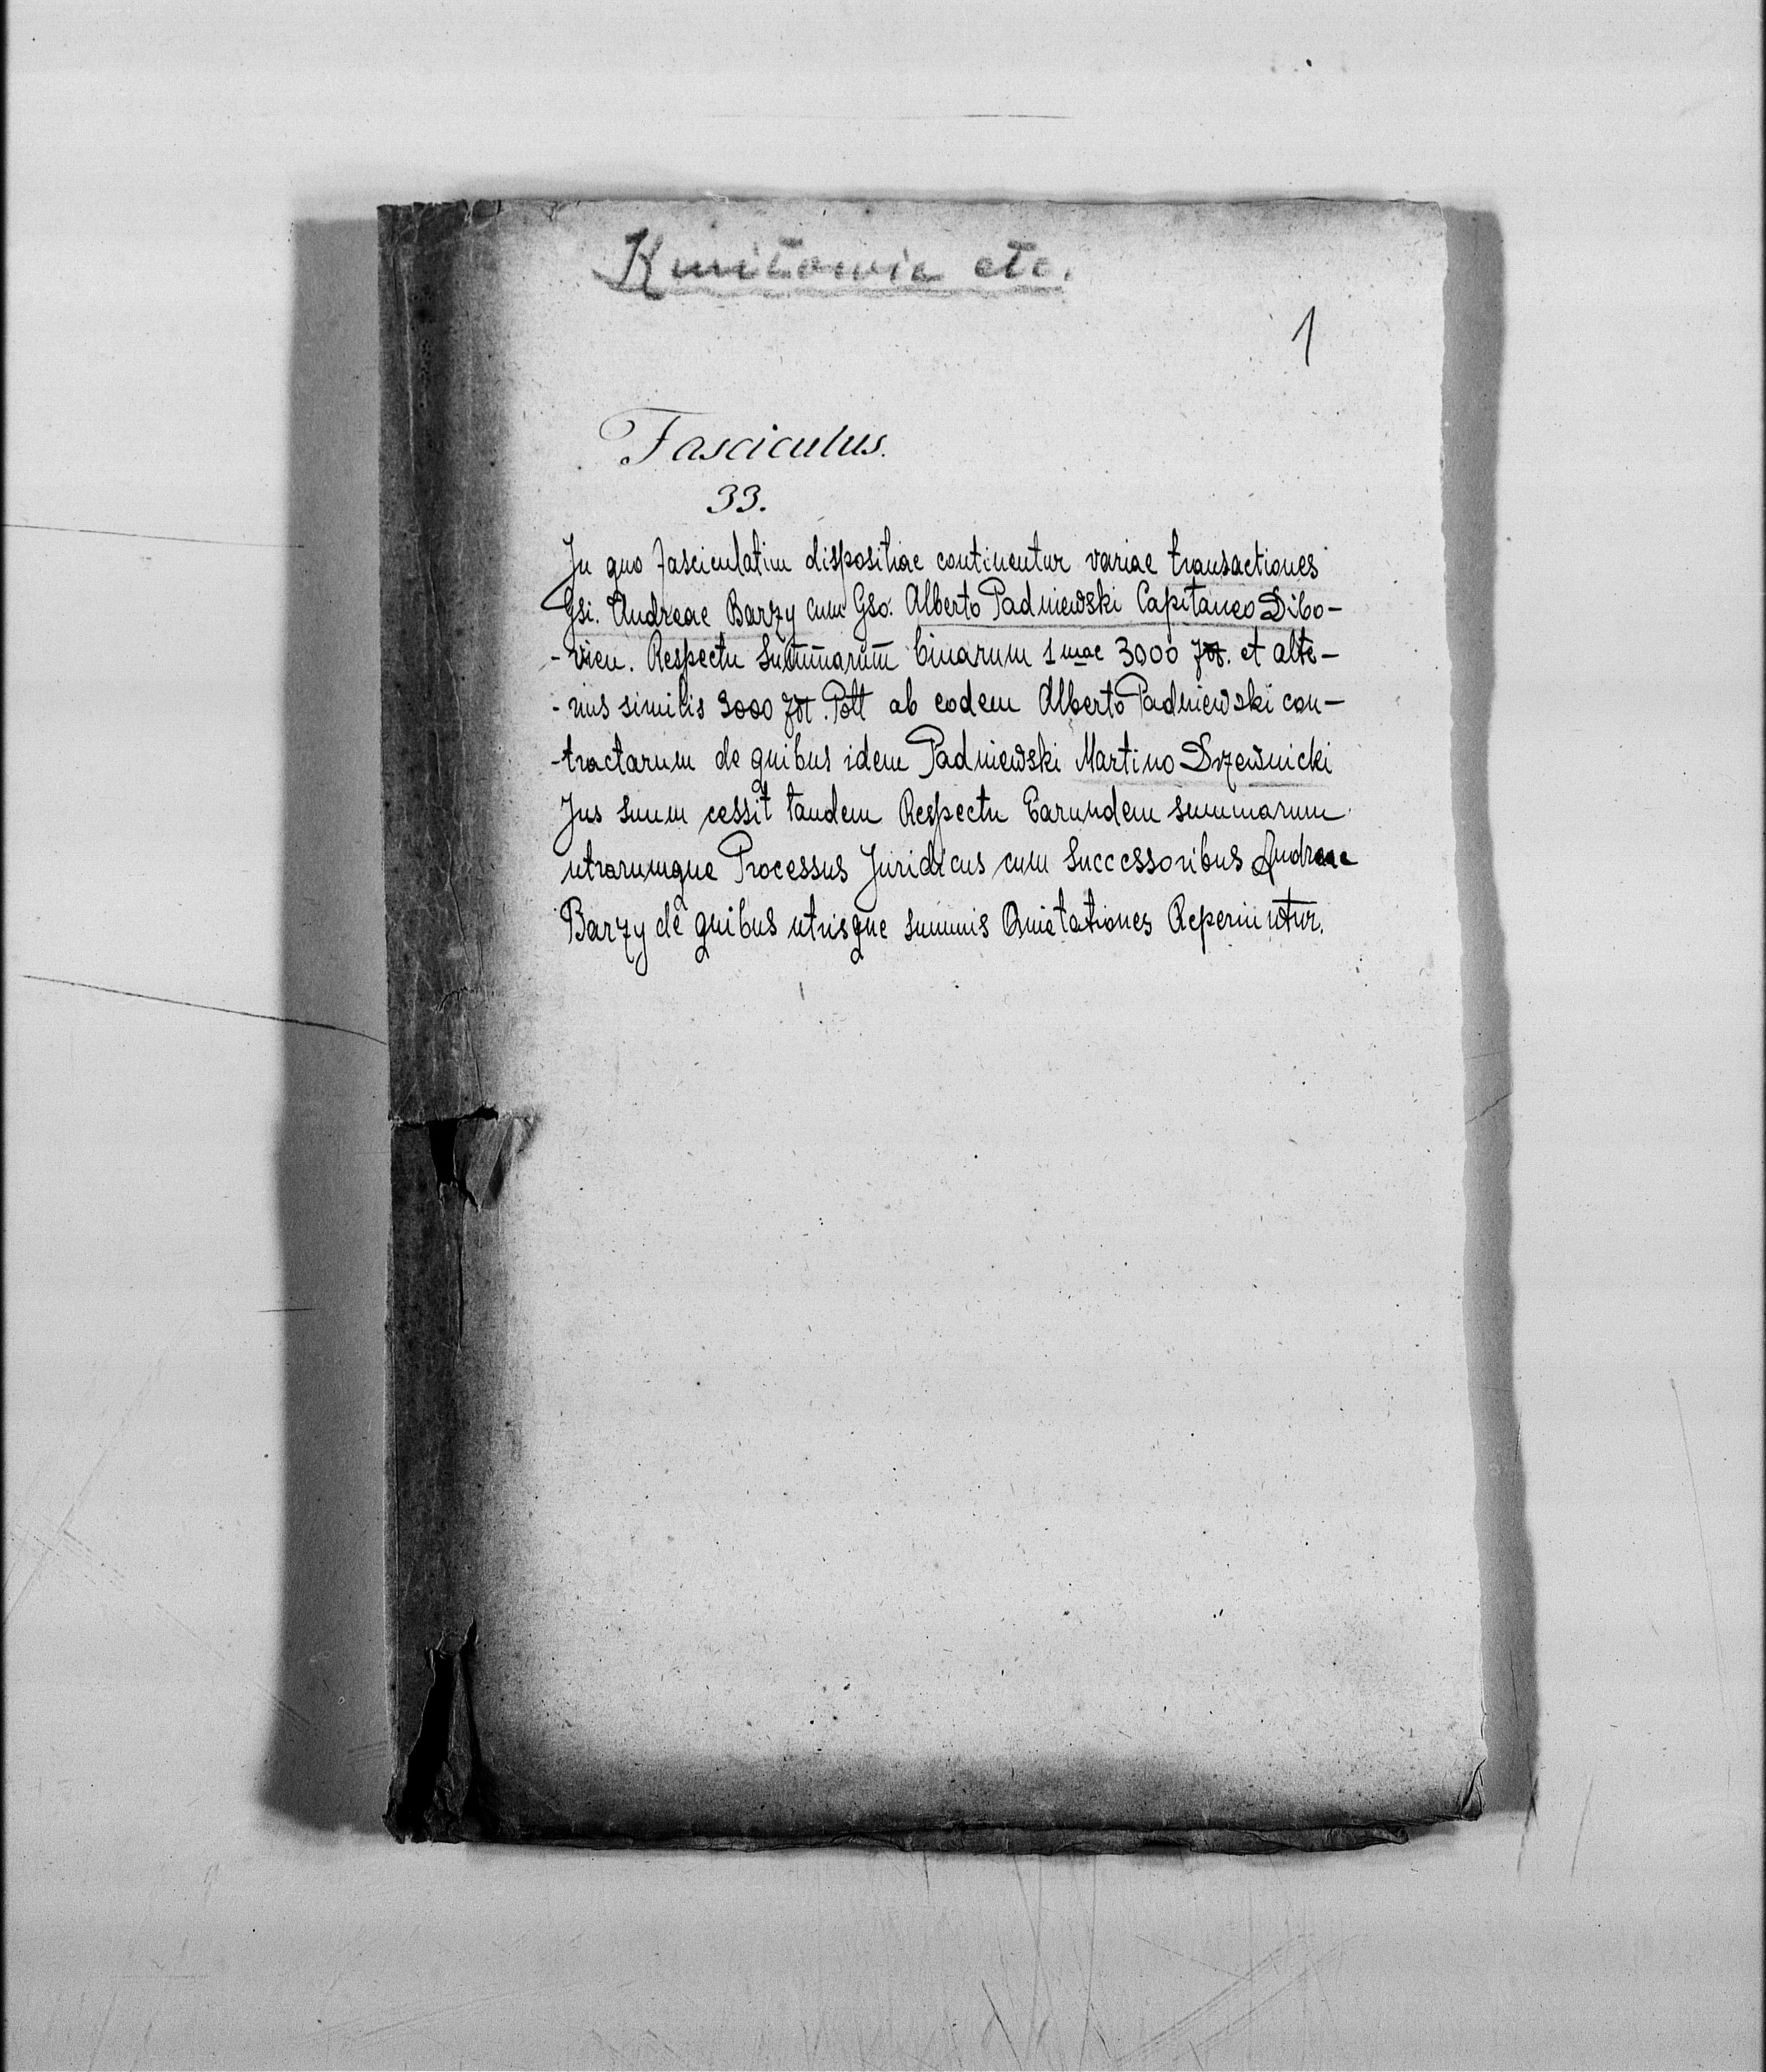 etc.
1
Fasciculus.
33.
In quo fasciculatim dispositiae continentur variae transactiones
Gsi. Andreae Barzy cum Gso. Alberto Padniewski Capitaneo Dibo-
- vien. Respectu Summarum binarum 1mae 3000 złt. et alte-
- rius similis 3000 złt. Poll ab eodem Alberto Padniewski con-
-tractarum de quibus idem Padniewski Martino Drzewnicki
Jus suum cessit tandem Respectu Earundem summarum
utrarumque Processus Juridicus cum Successoribus Andreae
Barzy de quibus utrisque summis Quietationes Reperiuntur.